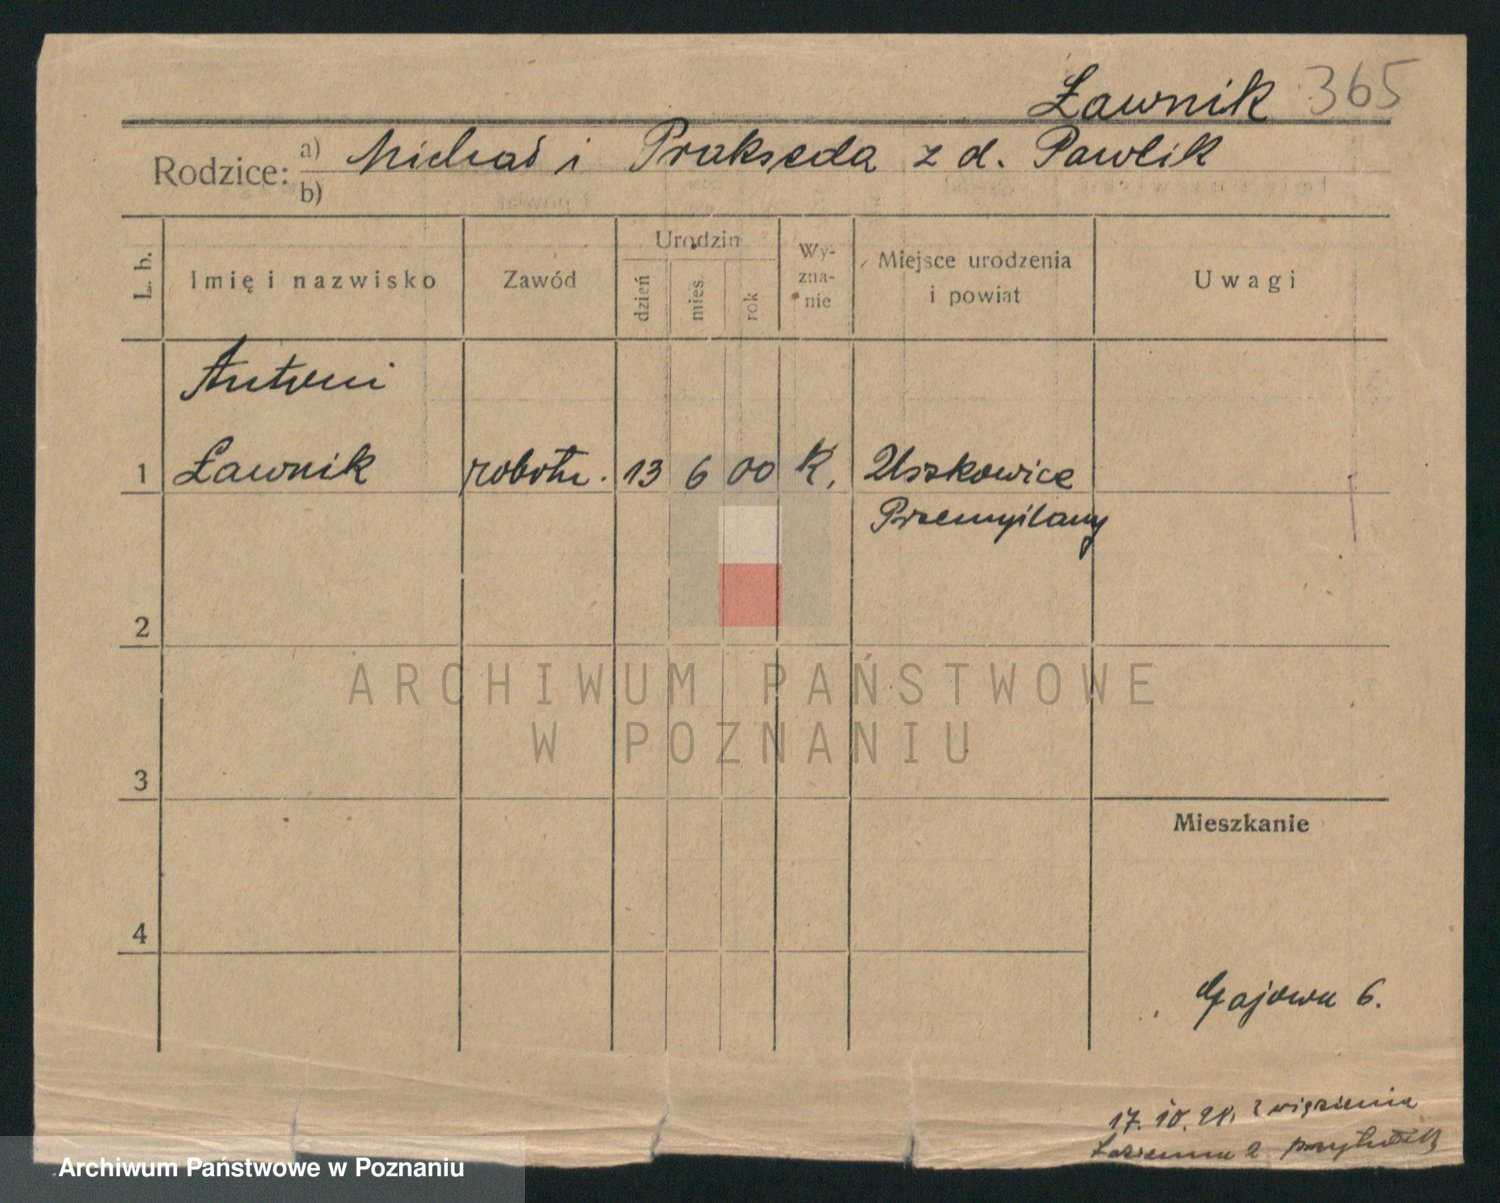 Ławnik 365
Rodzice: a) Michał i Prakseda z d. Pawlik
b)
L. b.
Imię i nazwisko
Zawód
Urodzin
dzień
mies.
rok
Wy-
zna-
nie
Miejsce urodzenia
i powiat
Uwagi
Antoni
1 Ławnik robotn. 13 6 00 K. Uszkowice
Przemyślany
2
ARCHIWUM PAŃSTWOWE
W POZNANIU
3
Mieszkanie
4
Gajowa 6.
17.10.28. z więzienia
przytułek
Archiwum Państwowe w Poznaniu